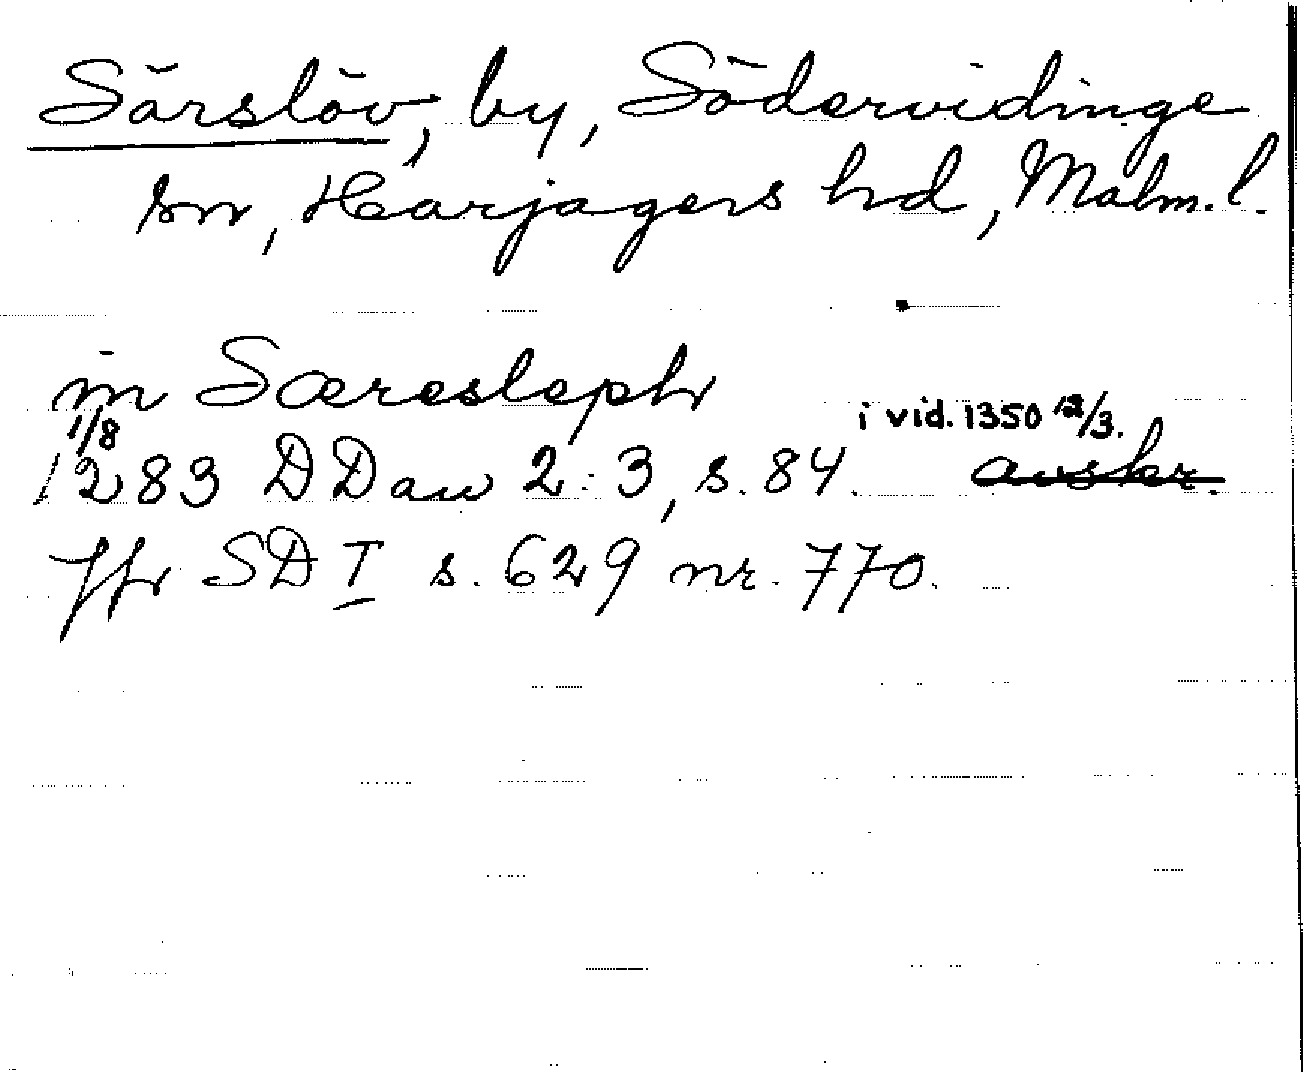 Särslöv, by, Södervidinge
sn, Harjagers hd, Malm. l.
in Særesleph
1/8
i vid. 1350 12/3.
1283 DDan 2:3, s. 84. avskr.
Jfr SD I s. 629 nr. 770.